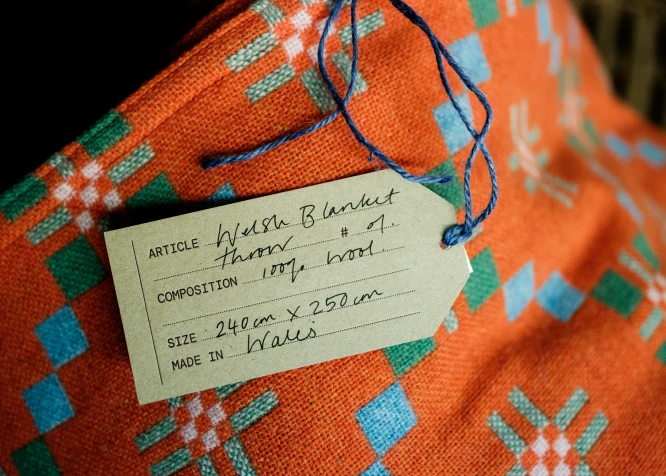 ARTICLE Welsh Blanket
throw # 01.
COMPOSITION 100% wool.
SIZE 240cm x 250cm
MADE IN Wales